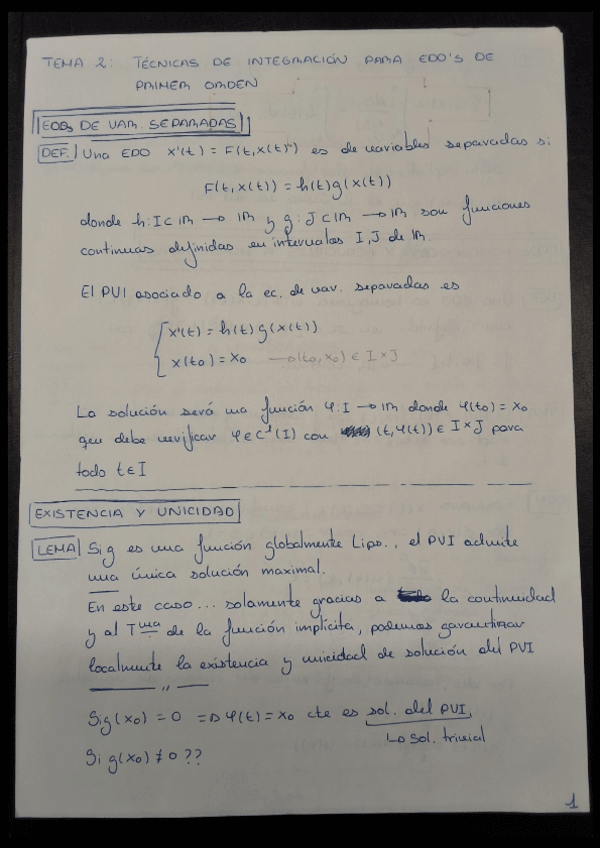 TEMA 2: TÉCNICAS DE INTEGRACIÓN PARA EDO'S DE
PRIMER ORDEN
EDOs DE VAR. SEPARADAS
DEF. Una EDO x'(t) = F(t, x(t)) es de variables separadas si
F(t, x(t)) = h(t)g(x(t))
donde h: I ⊂ IR → IR y g: J ⊂ IR → IR son funciones
continuas definidas en intervalos I, J de IR.
El PVI asociado a la ec. de var. separadas es
x'(t) = h(t)g(x(t))
x(t0) = x0 → (t0, x0) ∈ I×J
La solución será una función φ: I → IR donde φ(t0) = x0
que debe verificar φ ∈ C¹(I) con (t, φ(t)) ∈ I×J para
todo t ∈ I
EXISTENCIA Y UNICIDAD
LEMA Si g es una función globalmente Lips., el PVI admite
una única solución maximal.
En este caso... solamente gracias a la continuidad
y al Tma de la función implícita, podemos garantizar
localmente la existencia y unicidad de solución del PVI
Si g(x0) = 0 ⇒ φ(t) = x0 cte es sol. del PVI
↳ sol. trivial
Si g(x0) ≠ 0 ??
1